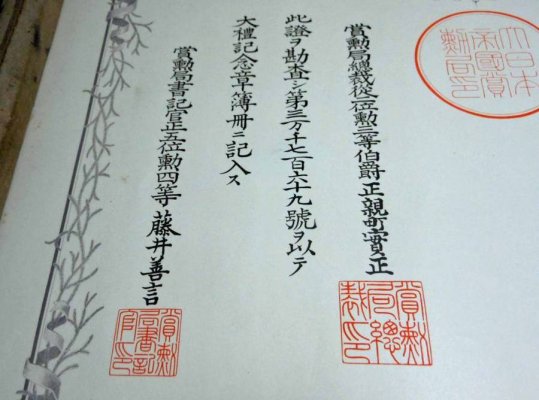 大日本帝國賞勳局印
賞勳局總裁從二位勳三等伯爵正親町實正
賞勳局總裁印
此證ヲ勘査シ第三万千七百六十九號ヲ以テ
大禮記念章簿冊ニ記入ス
賞勳局書記官正五位勳四等藤井善言
賞勳局書記官印